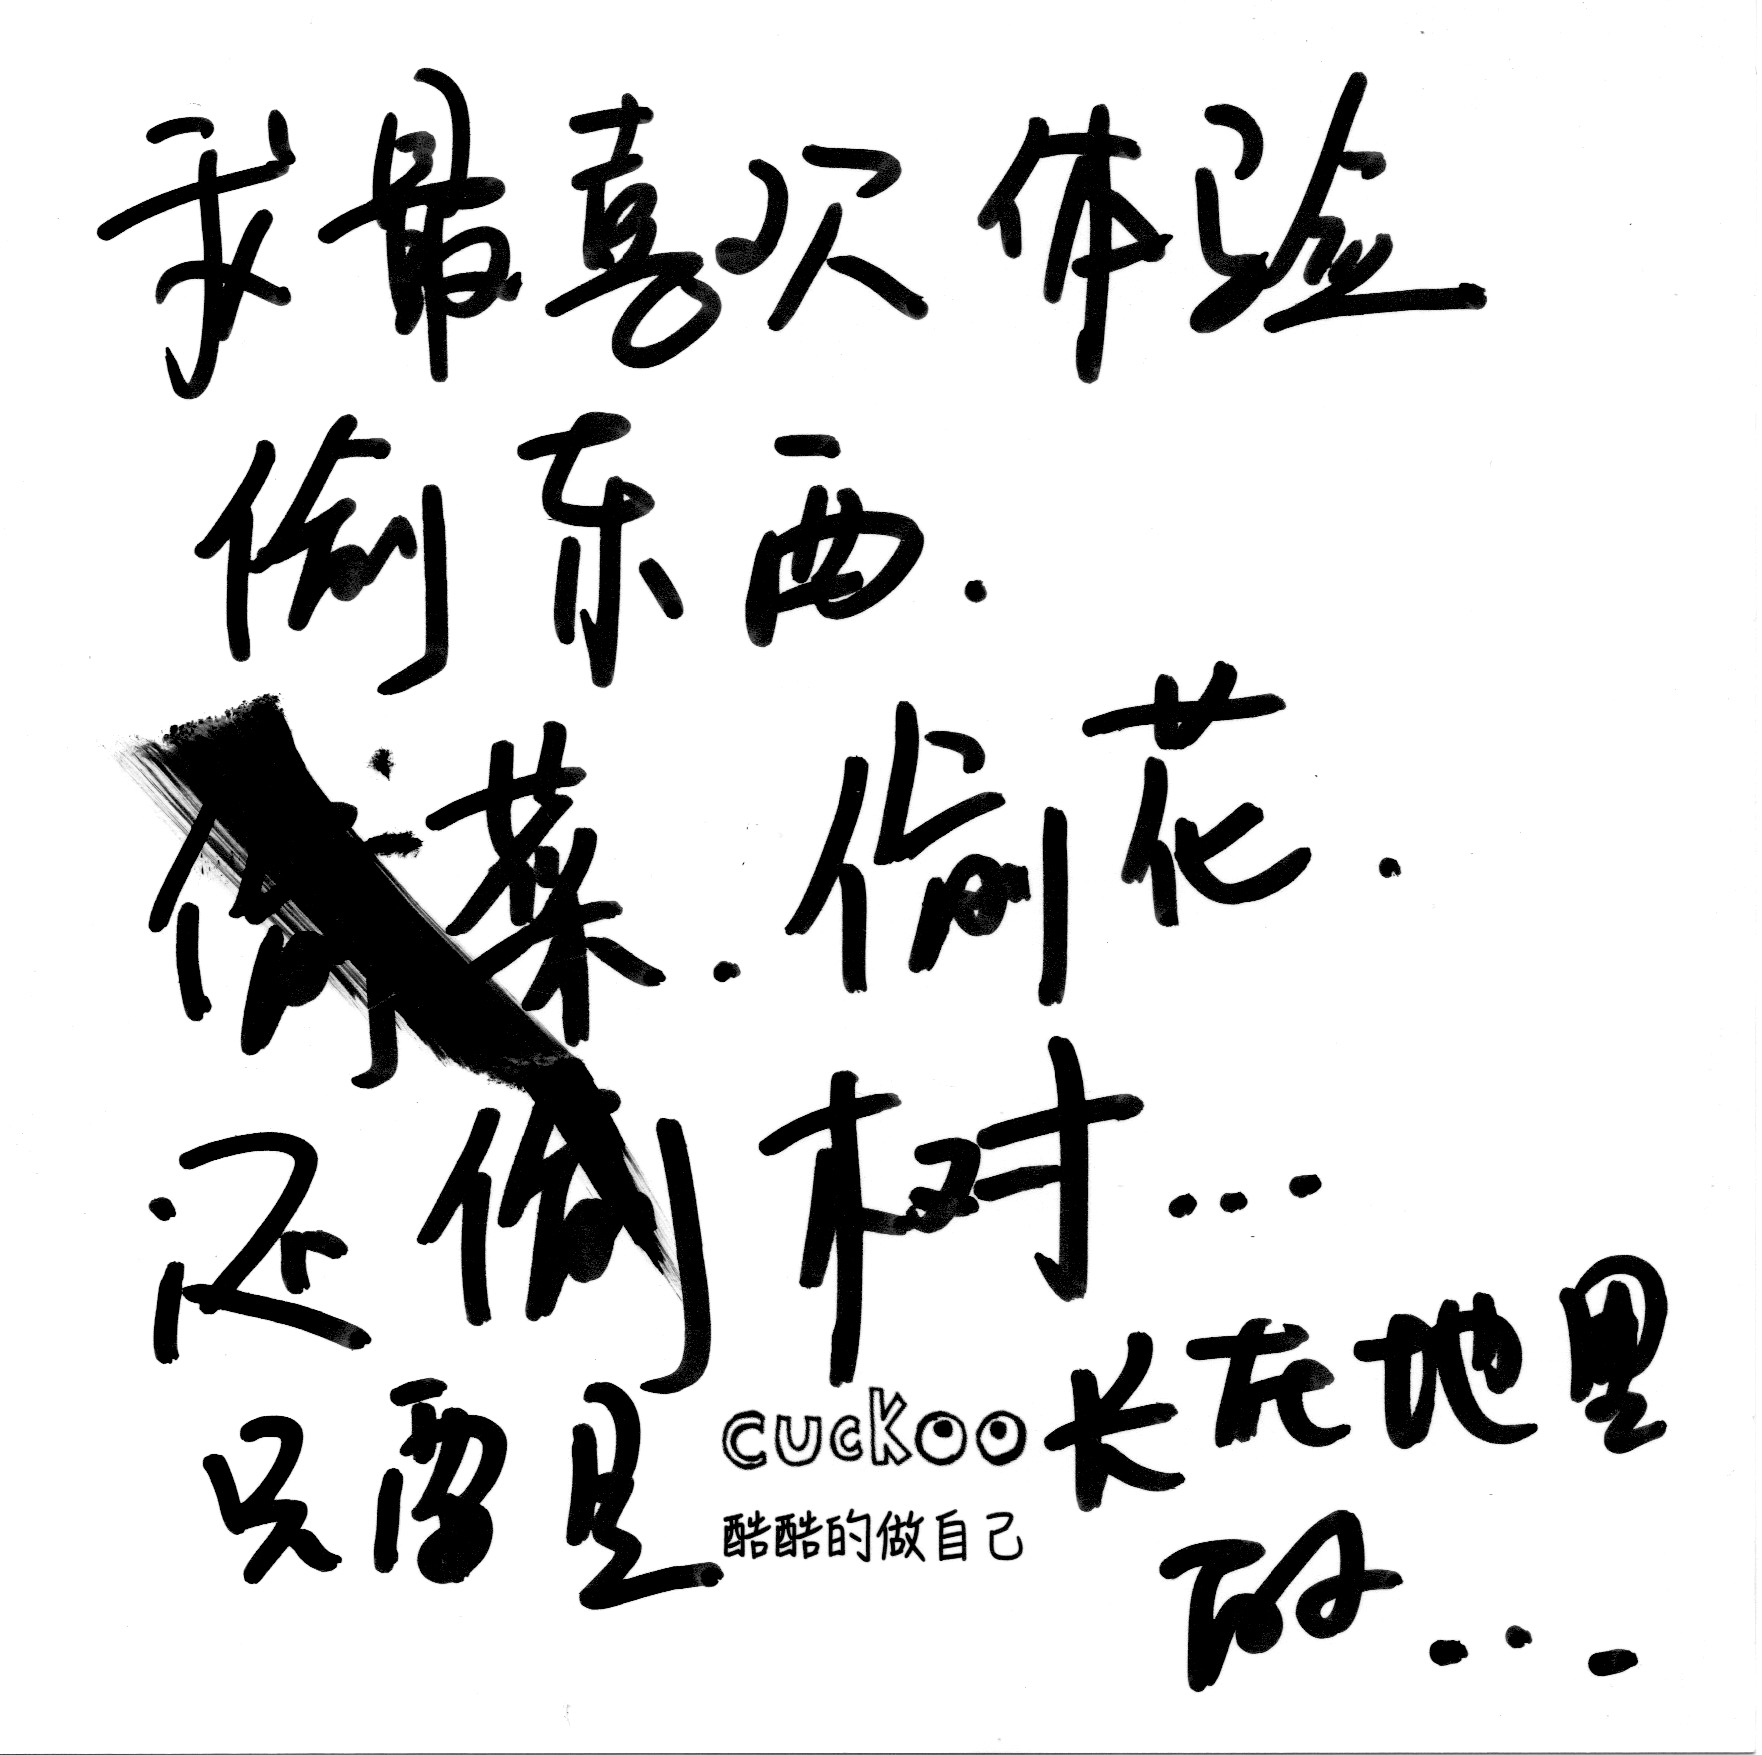 我最喜欢体验
偷东西.
偷菜.偷花.
还偷树...
只需是
cuckoo
酷酷的做自己
长在地里
的...